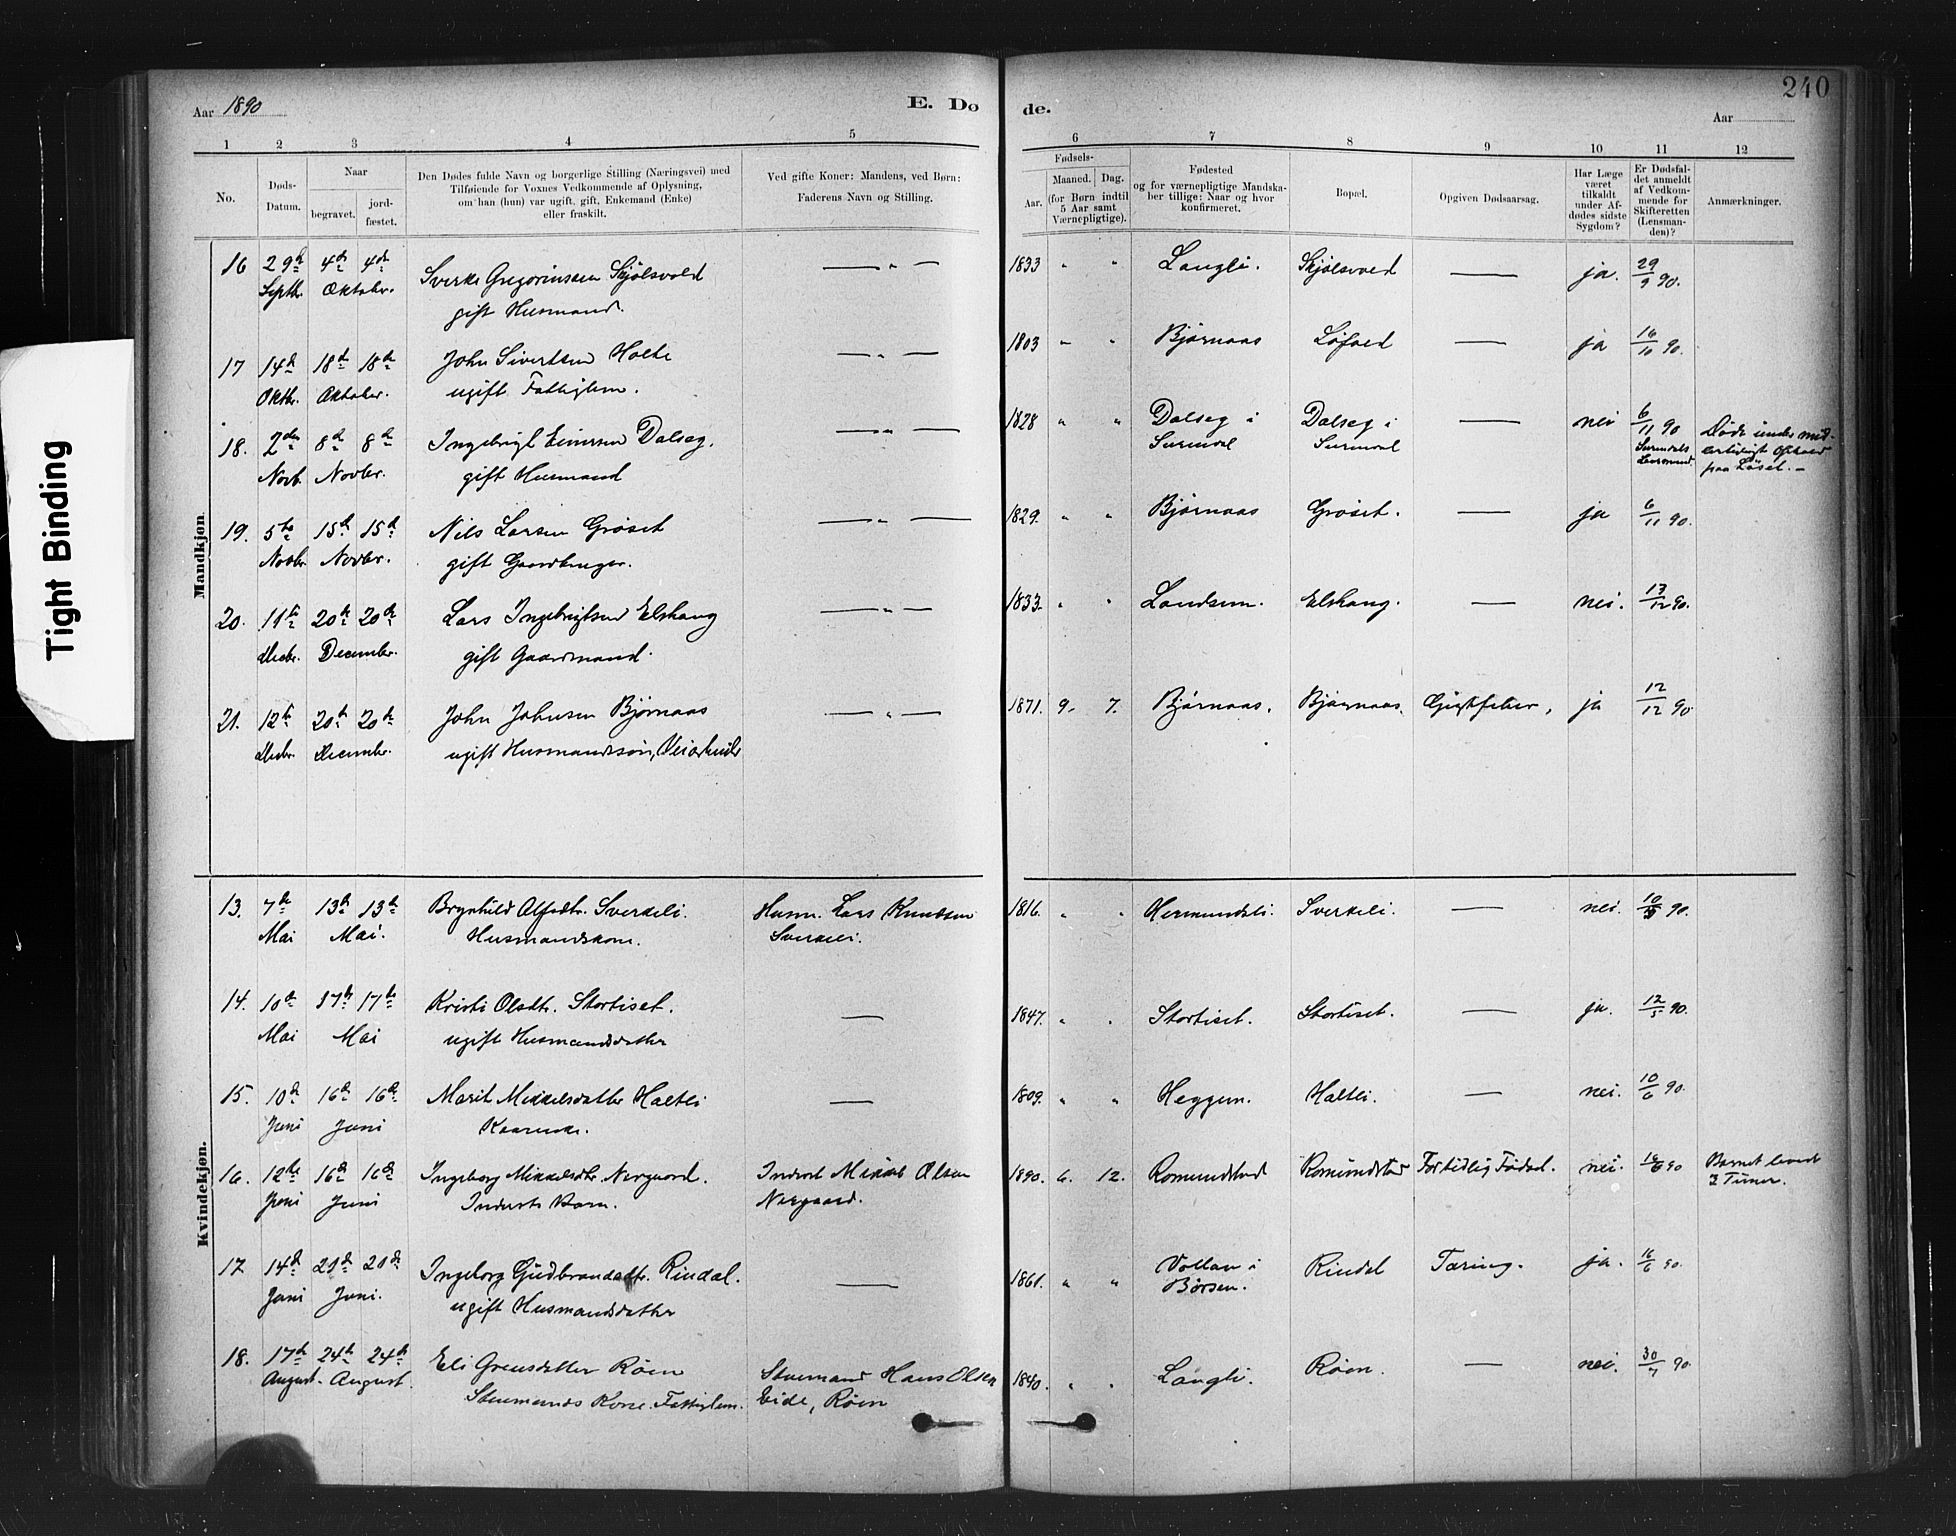 Tight Binding
240
Aar 1890
E. Dø
de.
Aar
1 2 3 4 5 6 7 8 9 10 11 12
No.
Døds-Datum.
Naar
begravet.
jord-fæstet.
Den Dødes fulde Navn og borgerlige Stilling (Næringsvei) med
Tilføiende for Voxnes Vedkommende af Oplysning,
om han (hun) var ugift, gift, Enkemand (Enke)
eller fraskilt.
Ved gifte Koner: Mandens, ved Børn:
Faderens Navn og Stilling.
Fødsels-
Aar.
Maaned.
Dag.
(for Børn indtil
5 Aar samt
Værnepligtige).
Fødested
og for værnepligtige Mandska-
ber tillige: Naar og hvor
konfirmeret.
Bopæl.
Opgiven Dødsaarsag.
Har Læge
været
tilkaldt
under Af-
dødes sidste
Sygdom?
Er Dødsfal-
det anmeldt
af Vedkom-
mende for
Skifteretten
(Lensman-
den)?
Anmærkninger.
Mandkjøn.
16 29de 4de 4de Sverke Gregoriussen Skjølsvold — " — 1833 " " Langli. Skjølsvold — ja. 29/9 90.
Septbr. Oktober. gift Husmand.
17 14de 18de 18de John Sivertsen Holte — " — 1803 " " Bjørnaas Løfald — ja 16/10 90.
Oktbr. Oktober. ugift Fattiglem.
18. 2den 8de 8de Ingebrigt Einersen Dalseg. — " — 1828 " " Dalseg i Dalseg i — nei 6/11 90 Døde under mid-
Novb. Novbr. gift Husmand Surendal Surendal Surendals Lensmand lertidigt Ophold
paa Løset. —
19. 5te 15de 15de Nils Larsen Grøset — " — 1829. " " Bjørnaas Grøset. — ja 6/11 90.
Novbr. Novbr. gift Gaardbruger.
20. 11te 20de 20de Lars Ingebrigtsen Elshaug — " — 1833. " " Landsem. Elshaug. — nei. 13/12 90.
Decbr. December. gift Gaardmand.
21. 12te 20de 20de John Johnsen Bjørnaas — " — 1871. 9. 7. Bjørnaas. Bjørnaas. Gigtfeber, ja 12/12 90
Decbr. December. ugift Husmandssøn, Veiarbeider
Kvindekjøn.
13. 7de 13de 13de Brynhild Alfsdtr. Sverkeli. Husm. Lars Knudsen 1816. " " Hermundsli. Sverkeli. — nei. 10/5 90.
Mai Mai. Husmandskone. Sverkeli.
14. 10de 17de 17de Kristi Olsdtr. Stortiset. — 1847. " " Stortiset. Stortiset. — ja. 12/5 90.
Mai Mai ugift Husmandsdatter
15. 10de 16de 16de Marit Mikkelsdatter Haltli — 1809. " " Heggem. Haltli. — nei. 10/6 90.
Juni Juni Kaarenke.
16. 12te 16de 16de Ingeborg Mikkelsdtr. Nergaard. Inderst Mikkel Olsen 1890. 6. 12. Romundstad Romundstad For tidlig Fødsel. nei. 90 Barnet levede
Juni Juni Inderste Barn. Nergaard. 2 Timer.
17 14de 21de 21de Ingeborg Gudbrandsdtr. Rindal. — 1861. " " Vollan i Rindal Tæring. ja. 16/6 90.
Juni Juni. ugift Husmandsdatter Børsen.
18. 17de 24de 24de Eli Grensdatter Røen Stuemand Hans Olsen 1840. " " Langli. Røen. — nei. 30/7 90.
August. August. Stuemands Kone. Fattiglem. Eide, Røen